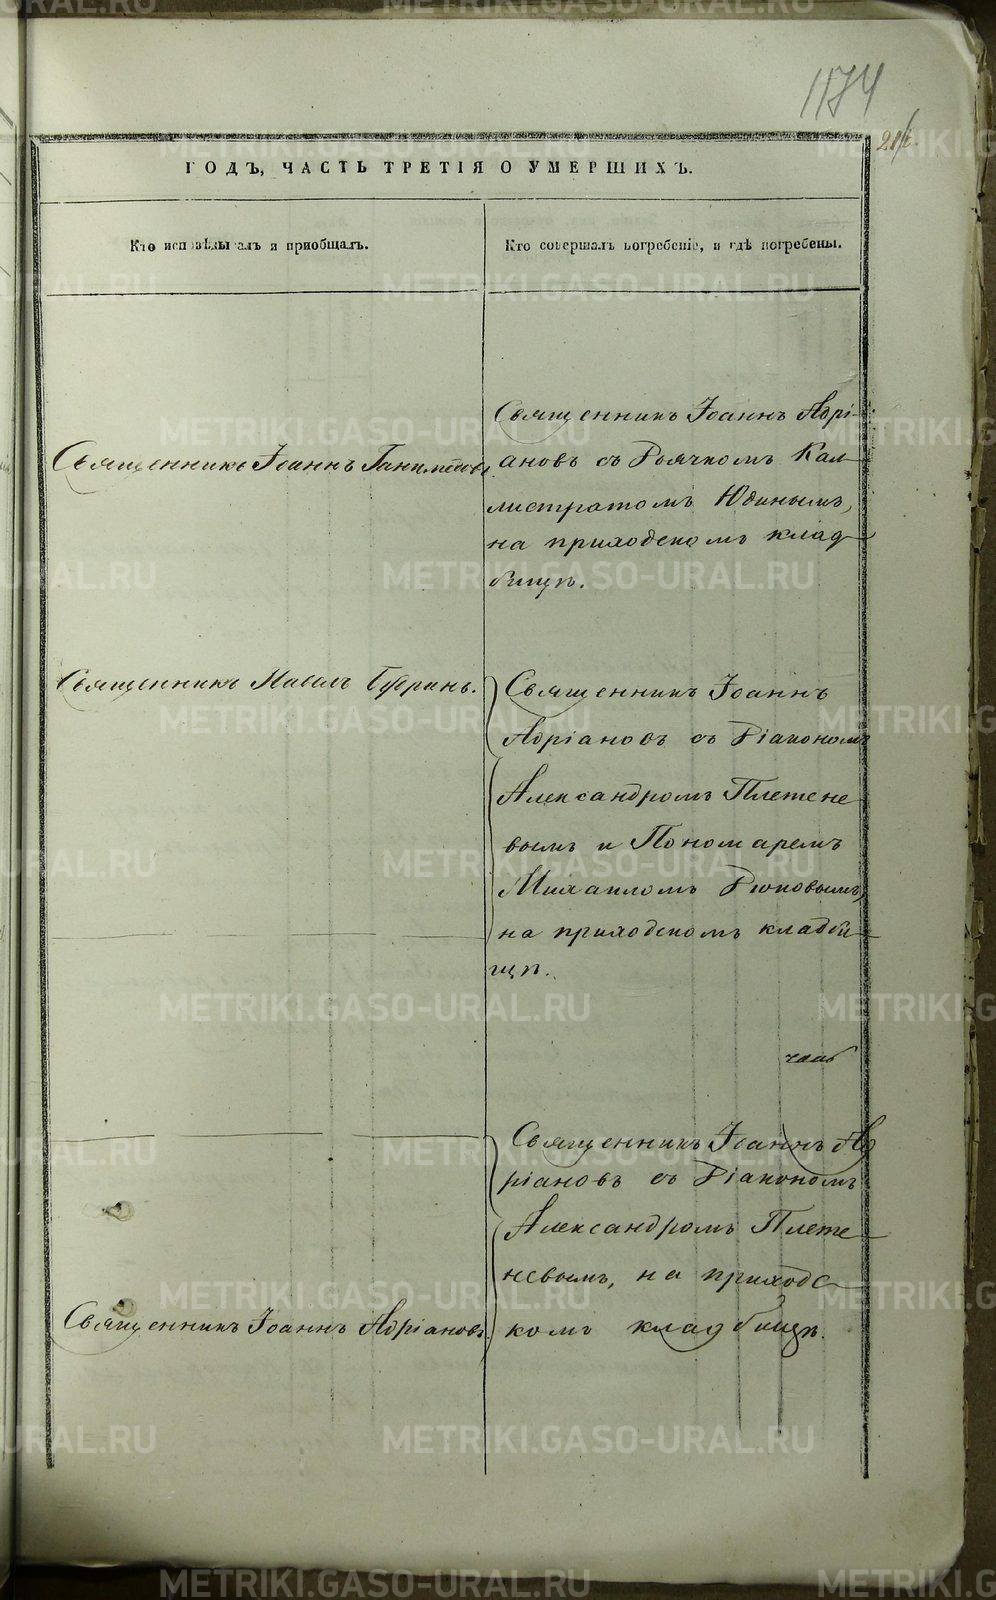 1174
ГОДЪ, ЧАСТЬ ТРЕТІЯ О УМЕРШИХЪ.
Кто исповѣдывалъ и приобщалъ.
Кто совершалъ погребеніе, и гдѣ погребены.
Священникъ Іоаннъ Ганимедовъ
Священникъ Іоаннъ Адрі-
ановъ съ Дьячкомъ Кал
листратомъ Юдинымъ,
на приходскомъ клад
бищѣ.
Священникъ Павелъ Бубринъ.
Священникъ Іоаннъ
Адріановъ съ Діакономъ
Александромъ Плетене
вымъ и Пономаремъ
Михаиломъ Рюковымъ,
на приходскомъ кладби
щѣ.
Священникъ Іоаннъ Ад
ріановъ съ Діакономъ
Александромъ Плете
невымъ, на приходс
комъ кладбищѣ.
Священникъ Іоаннъ Адріановъ.
METRIKI.GASO-URAL.RU